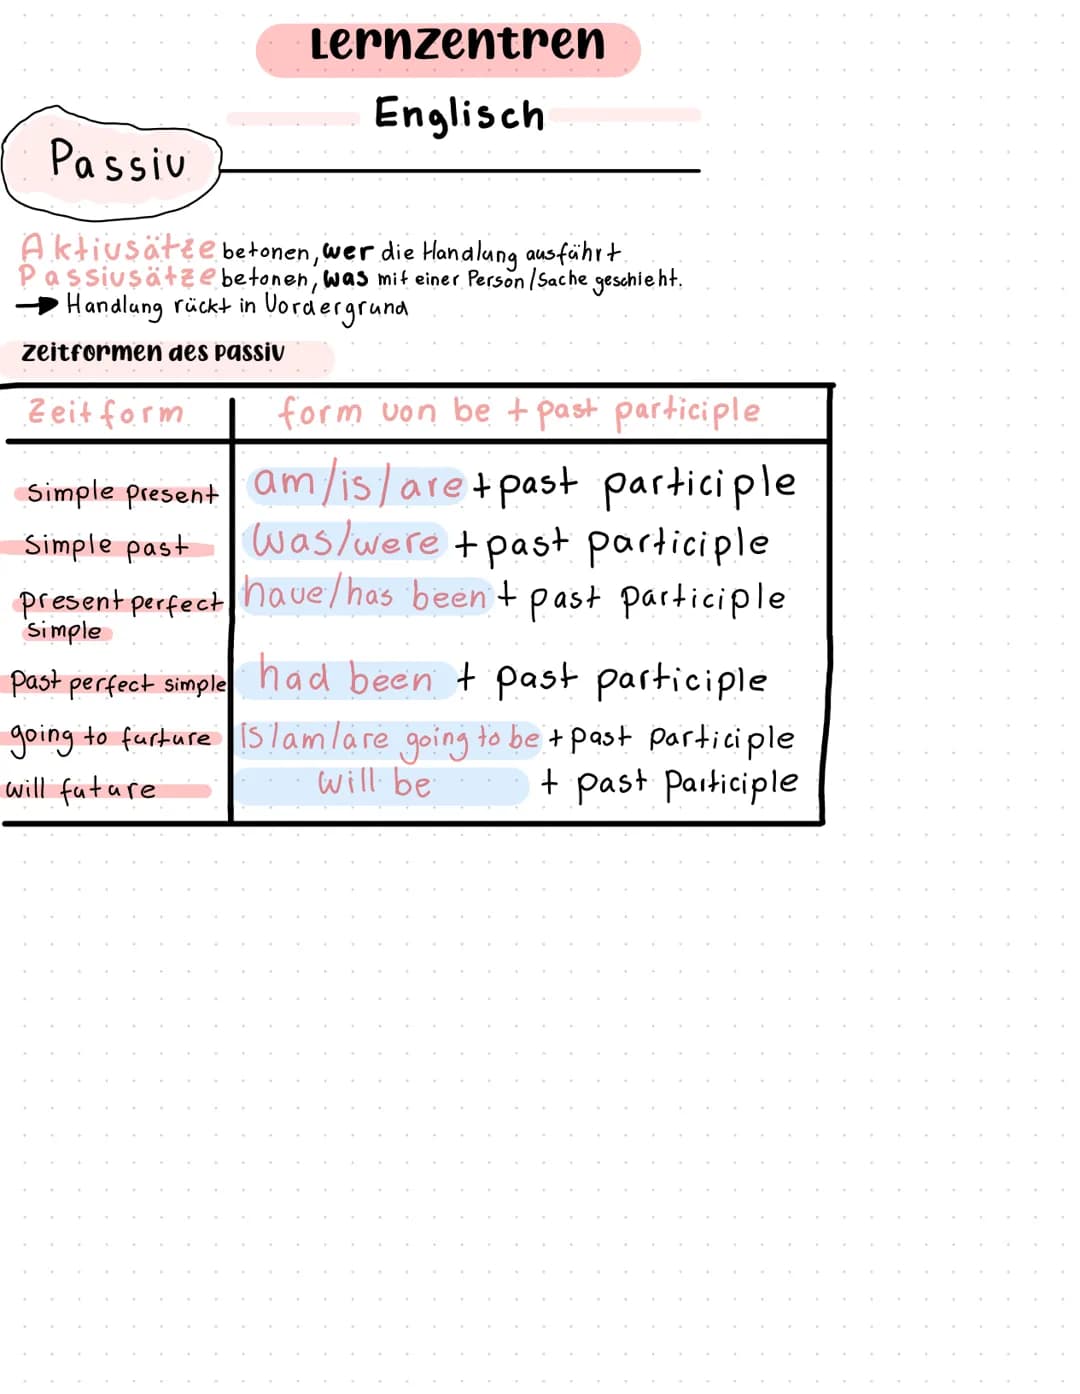 Lernzentren
Englisch
Passiv
Aktivsätze betonen, wer die Handlung ausführt
Passivsätze betonen, was mit einer Person/Sache geschieht.
→ Handlung rückt in Vordergrund
Zeitformen des Passiv
Zeitform form von be + past participle
Simple present am/is/are + past participle
Simple past was/were + past participle
present perfect have/has been + past participle
simple
Past perfect simple had been + past participle
going to furture is/am/are going to be + past participle
will future will be + past Participle